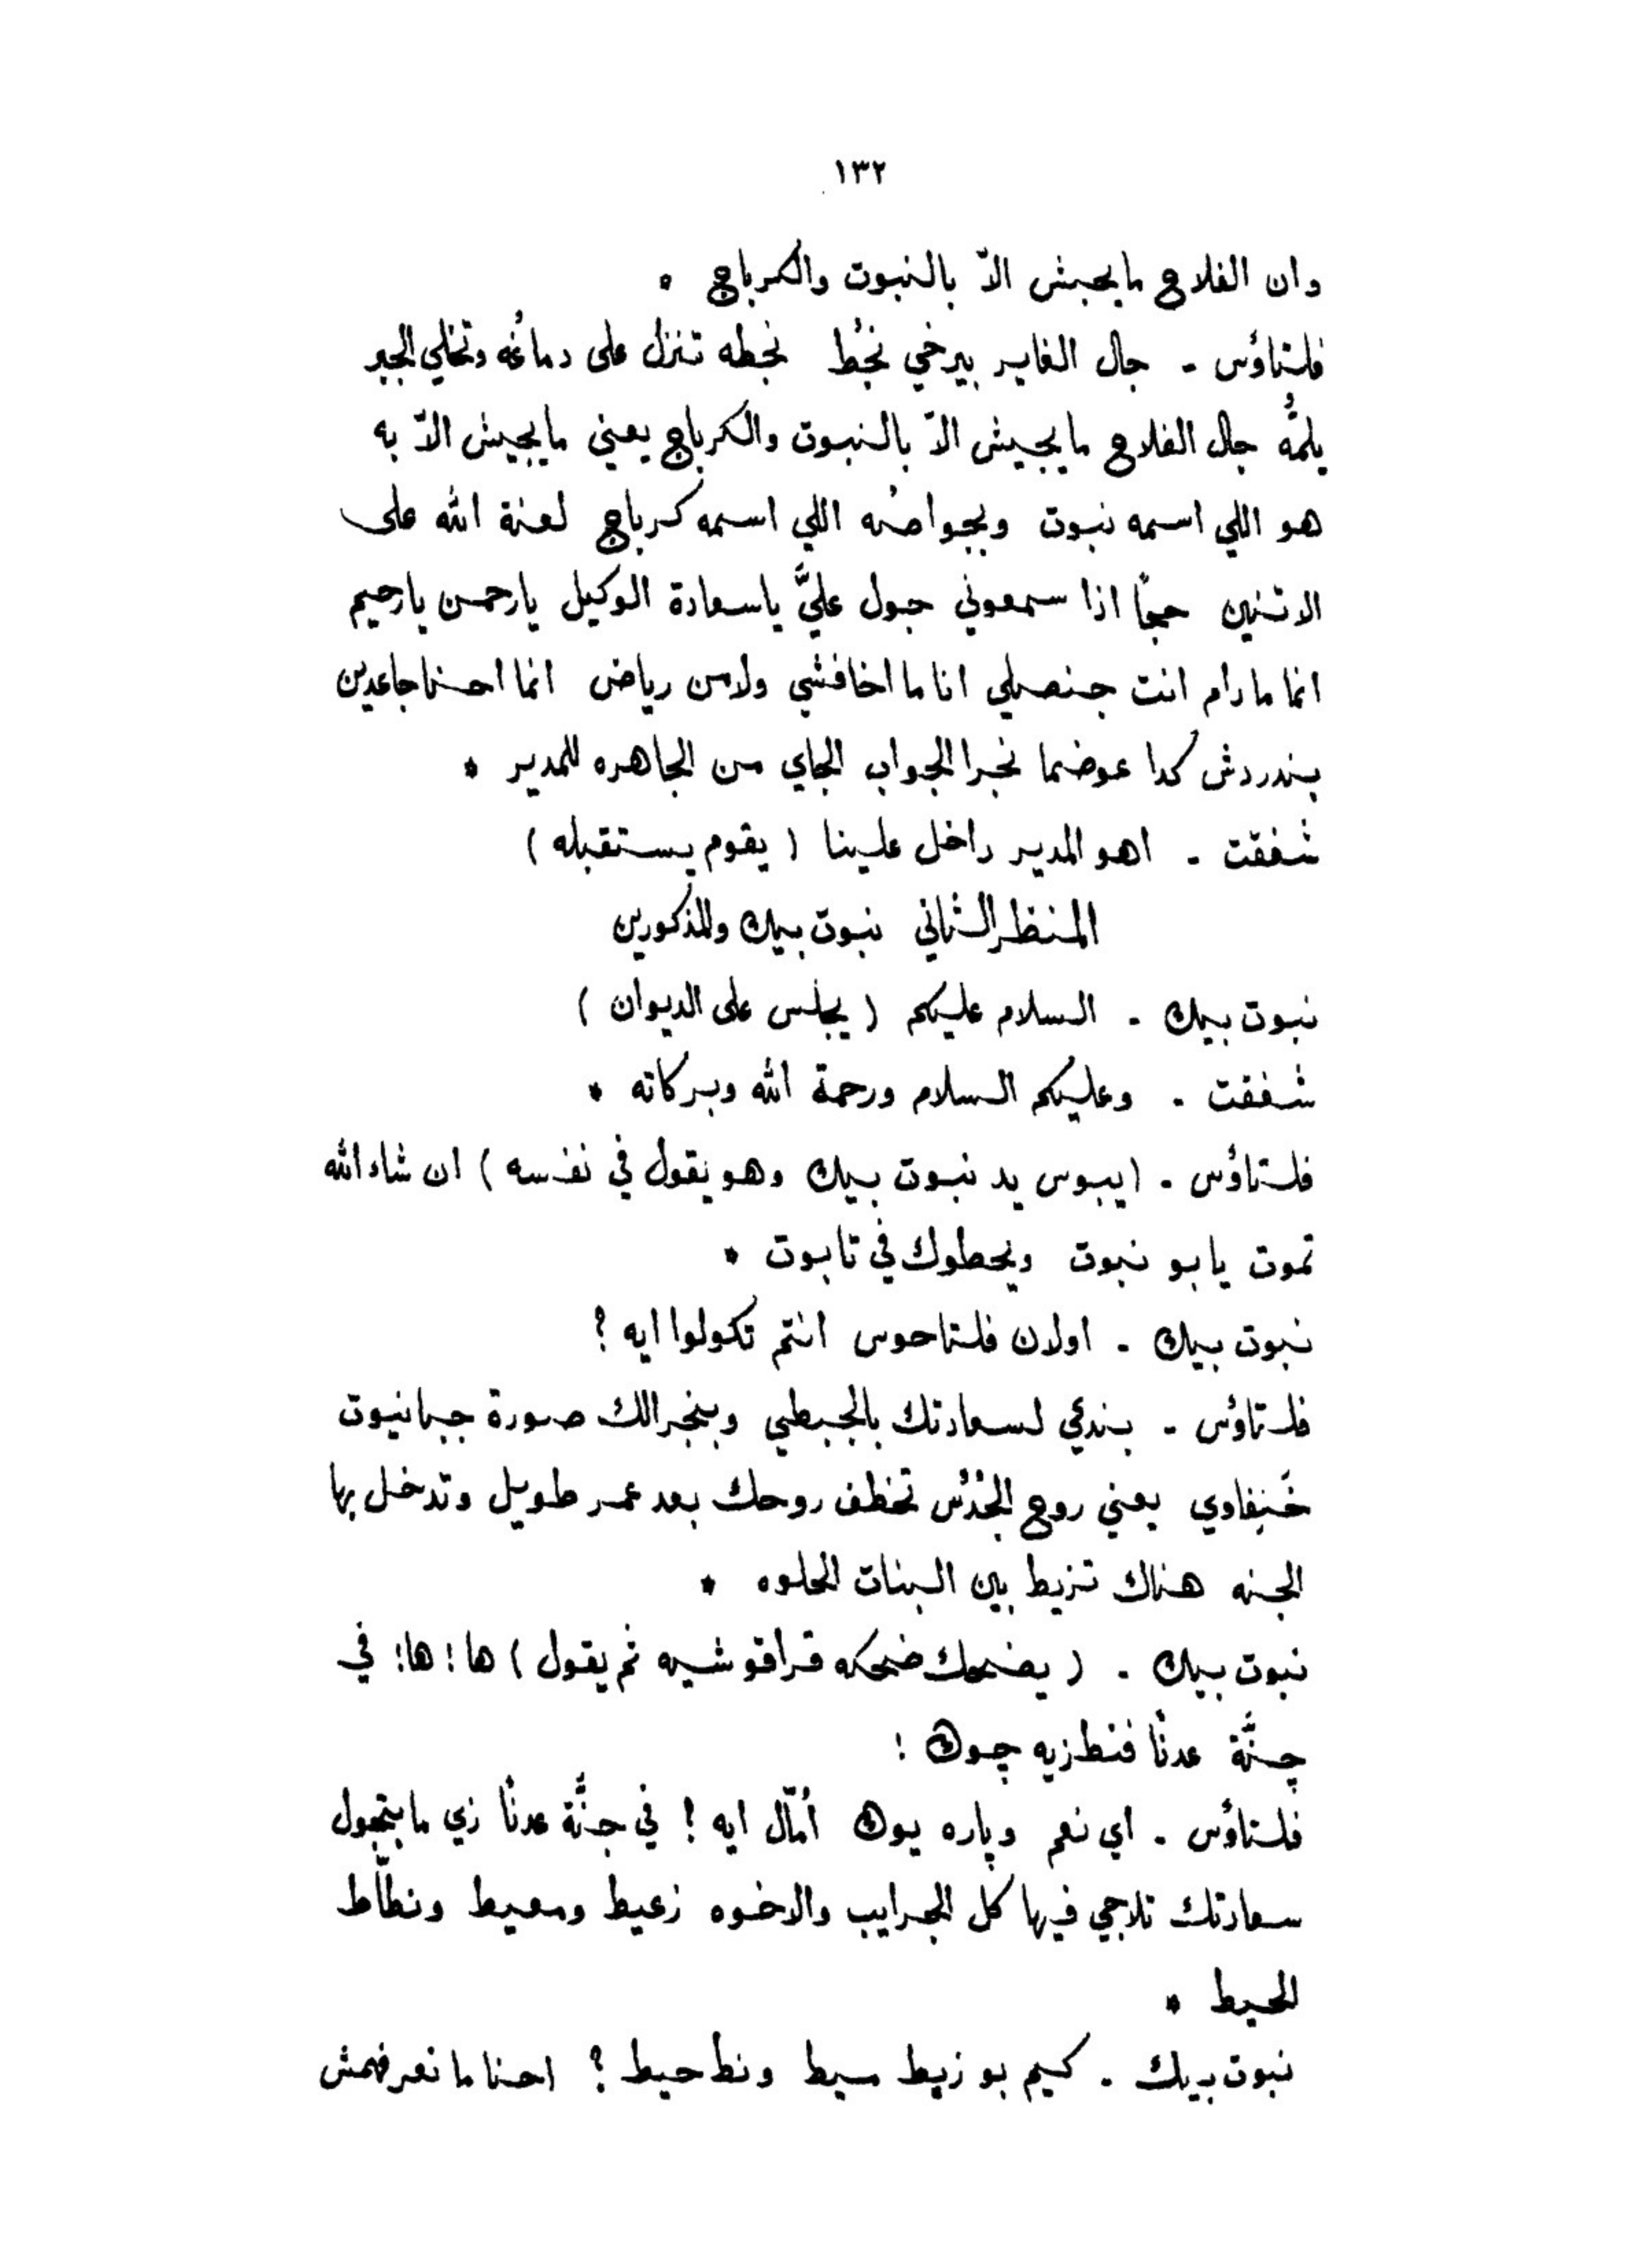 ١٣٢
وان الفلاح مايجيش الاّ بالنبوت والكرباج *
فلتاؤس - جال الفاير بيرخي نجُط نجطه تنزل على دماغُه وتخلي الجبر
يلمُّه جال الفلاح مايجيش الاّ بالنبوت والكرباج يعني مايجيش الاّ به
هو اللي اسمه نبوت وبجواصُه اللي اسمه كرباج لعنة الله على
الاتنين حجاً اذا سمعوني جبول عليَّ ياسعادة الوكيل يارحمن يارحيم
انما مادام انت جنصلي انا ما اخافشي ولامن رياض انما احنا جاعدين
بندردش كدا عوضما نجرا الجواب الجاي من الجاهره للمدير *
شفقت - اهو المدير داخل علينا ( يقوم يستقبله )
المنظر الثاني نبوت بيك والمذكورين
نبوت بيك - السلام عليكم ( يجلس على الديوان )
شفقت - وعليكم السلام ورحمة الله وبركاته *
فلتاؤس - (يبوس يد نبوت بيك وهو يقول في نفسه ) ان شاء الله
تموت يابو نبوت ويحطوك في تابوت *
نبوت بيك - اولان فلتاحوس انتم تكولوا ايه ؟
فلتاؤس - بندعي لسعادتك بالجبطي وبنجرالك صورة جبانيوت
خَنِفاوي يعني روح الجُدُس تخطف روحك بعد عمر طويل وتدخل بها
الجنه هناك تزيط بين البنات الحلوه *
نبوت بيك - ( يضحك ضحكه قراقوشيه ثم يقول ) ها ! ها ! في
جنَّة عدنًا فنطزيه چوك !
فلتاؤس - اي نعم وپاره يوك اُمّال ايه ! في جنَّة عدنًا زي مابتجول
سعادتك تلاجي فيها كل الجرايب والاخوه زعيط ومعيط ونطّاط
الحيط *
نبوت بيك - كيم بو زيط سيط ونط حيط ؟ احنا ما نعرفهمش